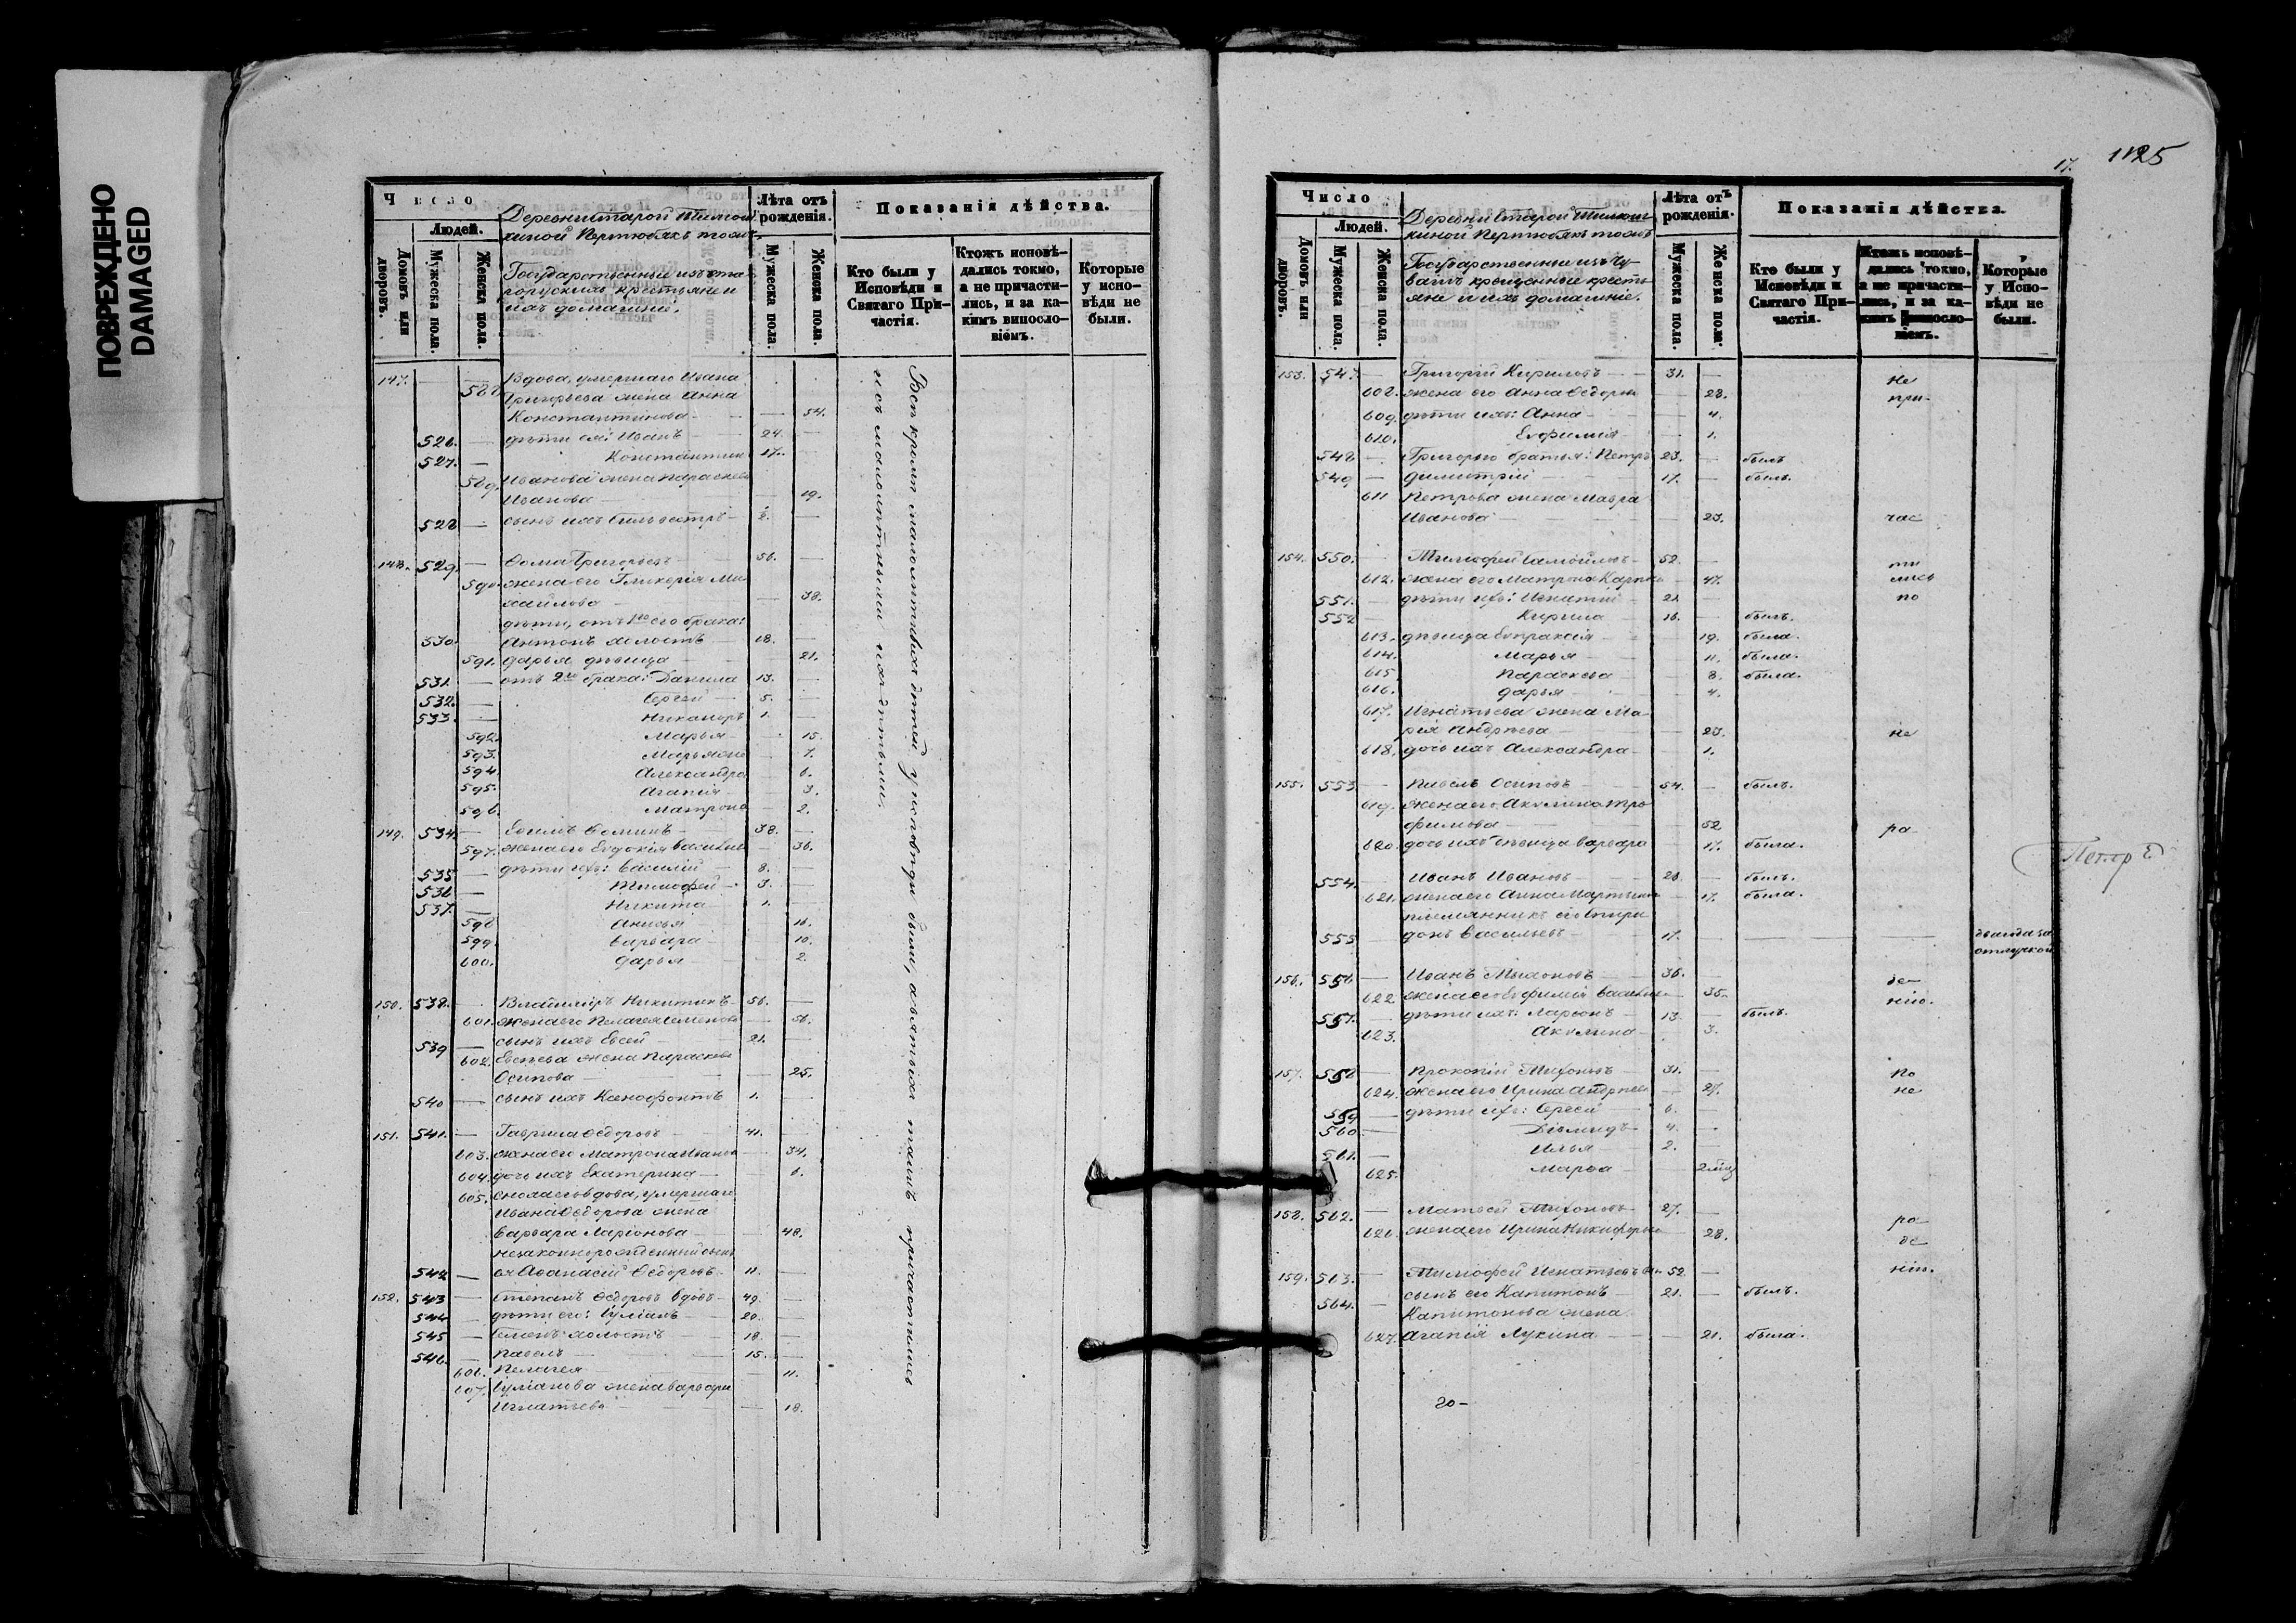 ПОВРЕЖДЕНО
DAMAGED
Число
Людей.
Домовъ или дворовъ.
Мужеска пола.
Женска пола.
Деревни Старой Тимош-
киной Пертюбякъ тожъ
Государственные изъ ста-
рорусскихъ крестьяне и
ихъ домашніе.
Лѣта отъ рожденія.
Мужеска пола.
Женска пола.
Показанія дѣйства.
Кто были у Исповѣди и Святаго При-частія.
Ктожъ исповѣ-дались токмо, а не причасти-лись, и за ка-кимъ винослo-віемъ.
Которые у испо-вѣди не были.
147. — 588. Вдова, умершаго Ивана
Григорьева жена Анна
Константинова — 54.
526. — дѣти ея: Иванъ 24. —
527. — Константинъ 17. —
589. Иванова жена Параскева
Иванова — 19.
528 — сынъ ихъ Сильвестръ —
148. 529. — Ѳома Григорьевъ 56. —
590. жена его Гликерія Ми-
хайлова — 38.
дѣти, отъ 1го его брака:
530. Антонъ холостъ 18. —
591. Дарья дѣвица 21.
531. — отъ 2го брака: Данила 13. —
532. — Сергей 5. —
533. — Никаноръ 1. —
592. Марья 15.
593. Марья же 7.
594. Александра 6.
595. Агапія 3.
596. Матрона 2.
149. 534. — Евѳимъ Ѳоминъ 38. —
597. жена его Евдокія Васильева 36.
535 — дѣти ихъ: Василій 8. —
536 — Тимофей 3. —
537. — Никита 1. —
598 Анисья 16.
599. Варвара 10.
600. Дарья 2.
150. 538. — Владиміръ Никитинъ 56. —
601. жена его Пелагея Семенова — 56.
539 — сынъ ихъ Евсей 21. —
602. Евсѣева жена Параскева
Осипова — 25.
540 — сынъ ихъ Ксенофонтъ 1. —
151. 541. — Гаврила Ѳедоровъ 41. —
603. жена его Матрона Иванова 34.
604. дочь ихъ Екатерина 6.
605. сноха его вдова, умершаго
Ивана Ѳедорова жена
Варвара Ларіонова — 48.
незаконнорожденный сынъ
542 — ея Аѳанасій Ѳедоровъ 11. —
152. 543 — Степанъ Ѳедоровъ вдовъ 49. —
544 — дѣти его: Іуліанъ 20. —
545 — Семенъ холостъ 18. —
546. — Павелъ 15. —
606. Пелагея 11.
607. Іуліанова жена Варвара
Игнатьева — 18.
Всѣ кромѣ малолѣтныхъ дѣтей у исповѣди были, а святыхъ таинъ причастились
и съ малолѣтными ихъ дѣтьми.
17. 1125
Число
Людей.
Домовъ или дворовъ.
Мужеска пола.
Женска пола.
Деревни Старой Тимош-
киной Пертюбякъ тожъ
Государственные изъ Чу-
вашъ крещенные кресть-
яне и ихъ домашніе.
Лѣта отъ рожденія.
Мужеска пола.
Женска пола.
Показанія дѣйства.
Кто были у Исповѣди и Святаго При-частія.
Ктожъ исповѣ-дались токмо, а не причасти-лись, и за ка-кимъ винослo-віемъ.
Которые у Испо-вѣди не были.
153. 547. — Григорій Кириловъ 31. — не
608. жена его Анна Ѳедорова — 28. при-
609. дѣти ихъ: Анна 4.
610. Евфимія 1.
548 — Григорію братья: Петръ 23. — былъ
549 — Димитрій 17. — былъ.
611 Петрова жена Мавра
Иванова — 23. час
154. 550. — Тимофей Самойловъ 52. — ти
612. жена его Матрона Карпова — 47. лись
551. — дѣти ихъ: Игнатій 21. — по
552 — Кирила 16. былъ.
613. дѣвица Евпраксія 19. была.
614. Марья 11. была.
615 Параскева 8. была.
616. Дарья 4.
617. Игнатьева жена Ма-
рія Андреева — 23. не
618. дочь ихъ Александра 1.
155. 553 — Павелъ Осиповъ 54. — былъ.
619. жена его Акулина Тро-
фимова — 52 ра-
620. дочь ихъ дѣвица Варвара 17. была.
554. Иванъ Ивановъ — былъ.
621. жена его Анна Мартынова 17. была.
племянникъ его Спири-
555 донъ Васильевъ 17. отлучкою
156. 556 — Иванъ Тихоновъ 36. — де-
622. жена его Евфимія Васильева 35. нію.
557. — дѣти ихъ: Ларіонъ 13. — былъ.
623. Акулина 3.
157. 558 — Прокопій Тихоновъ 31. — По
624. жена его Ирина Андреева — 27. не
559 — дѣти ихъ: 6. —
560 — 4. —
561. — Илья 2. —
625. Марѳа
158. 562. — Матвей Тихоновъ 27. — ра-
626. жена его Ирина Никифорова 28. де
159. 563. — Тимофей Игнатьевъ 52 — нію.
564. — сынъ его Капитонъ 21. — былъ.
Капитонова жена
627. Агапія Лукина — 21. была.
го-